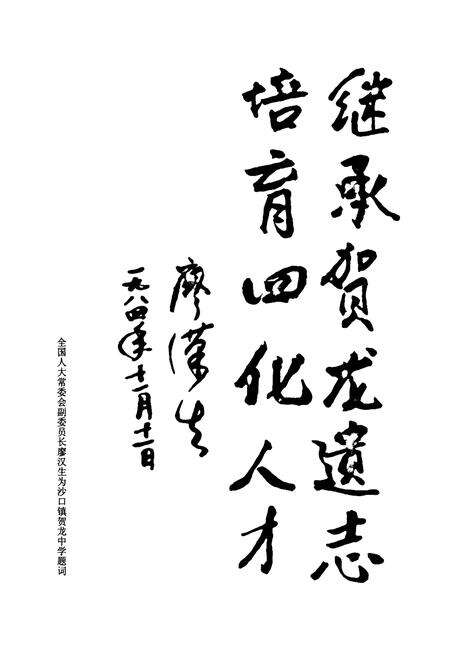 继承贺龙遗志
培育四化人才
廖汉生
一九八四年十一月十一日
全国人大常委会副委员长廖汉生为沙口镇贺龙中学题词